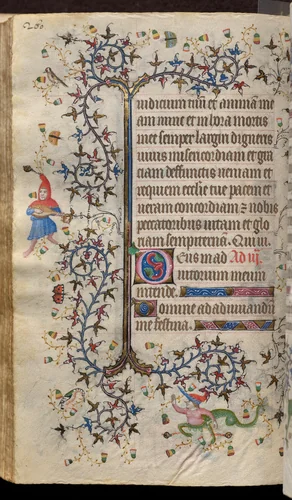 iudicium tuu et animā me
am nunc et in hora mortis
mee semper largiri digneris
viuis misericordiam et gra
ciam defunctis veniam et
requiem ecclie tue pacem et
veram concordiam & nobis
peccatoribus vitam et glo
riam sempiternā. Qui vi.
Deus in ad Ad iij
iutorium meum
intende.
Domine ad adiuuandū
me festina.